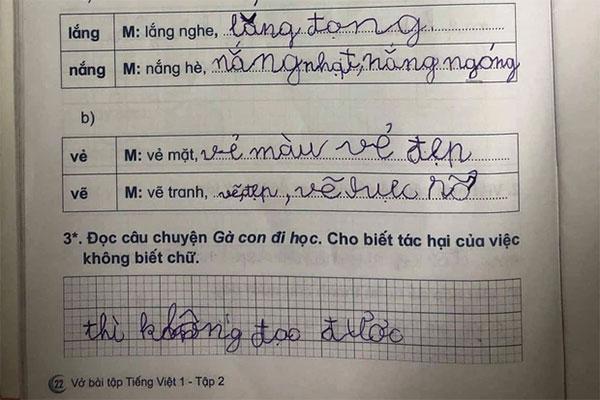 lắng M: lắng nghe, lắng đong
nắng M: nắng hè, nắng nhạt, nắng ngóng
b)
vẻ M: vẻ mặt, vẻ màu vẻ đẹp
vẽ M: vẽ tranh, vẽ đẹp, vẽ rực rỡ
3*. Đọc câu chuyện Gà con đi học. Cho biết tác hại của việc
không biết chữ.
thì không đạo được
22 Vở bài tập Tiếng Việt 1 - Tập 2